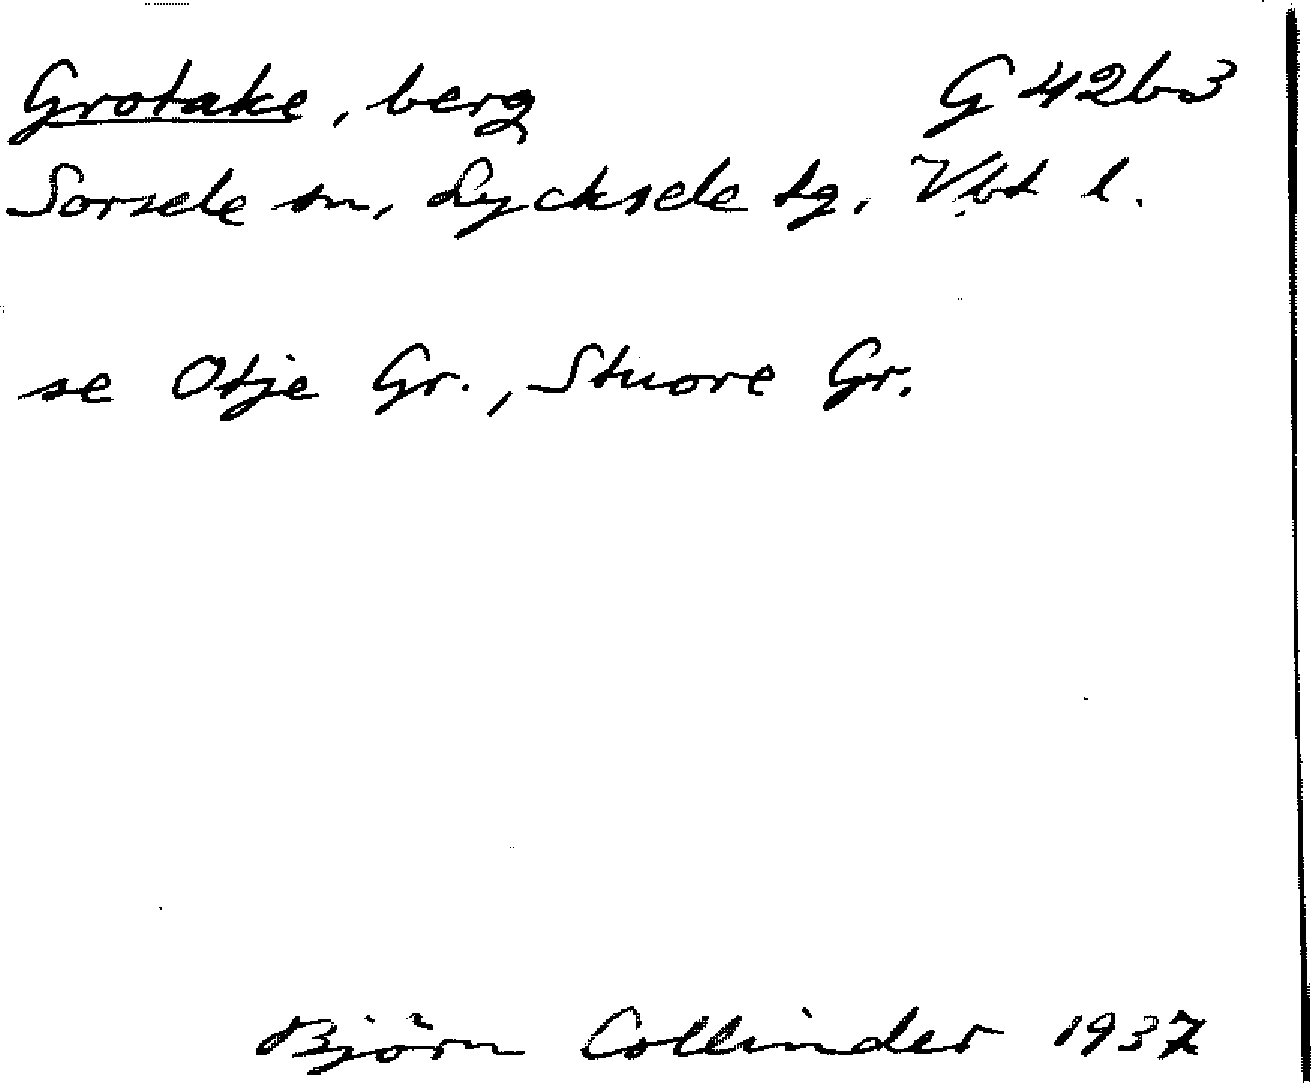 Grotake, berg G 42b3
Sorsele sn, Lycksele tg. Vbt l.
se Otje Gr., Stuore Gr.
Björn Collinder 1937